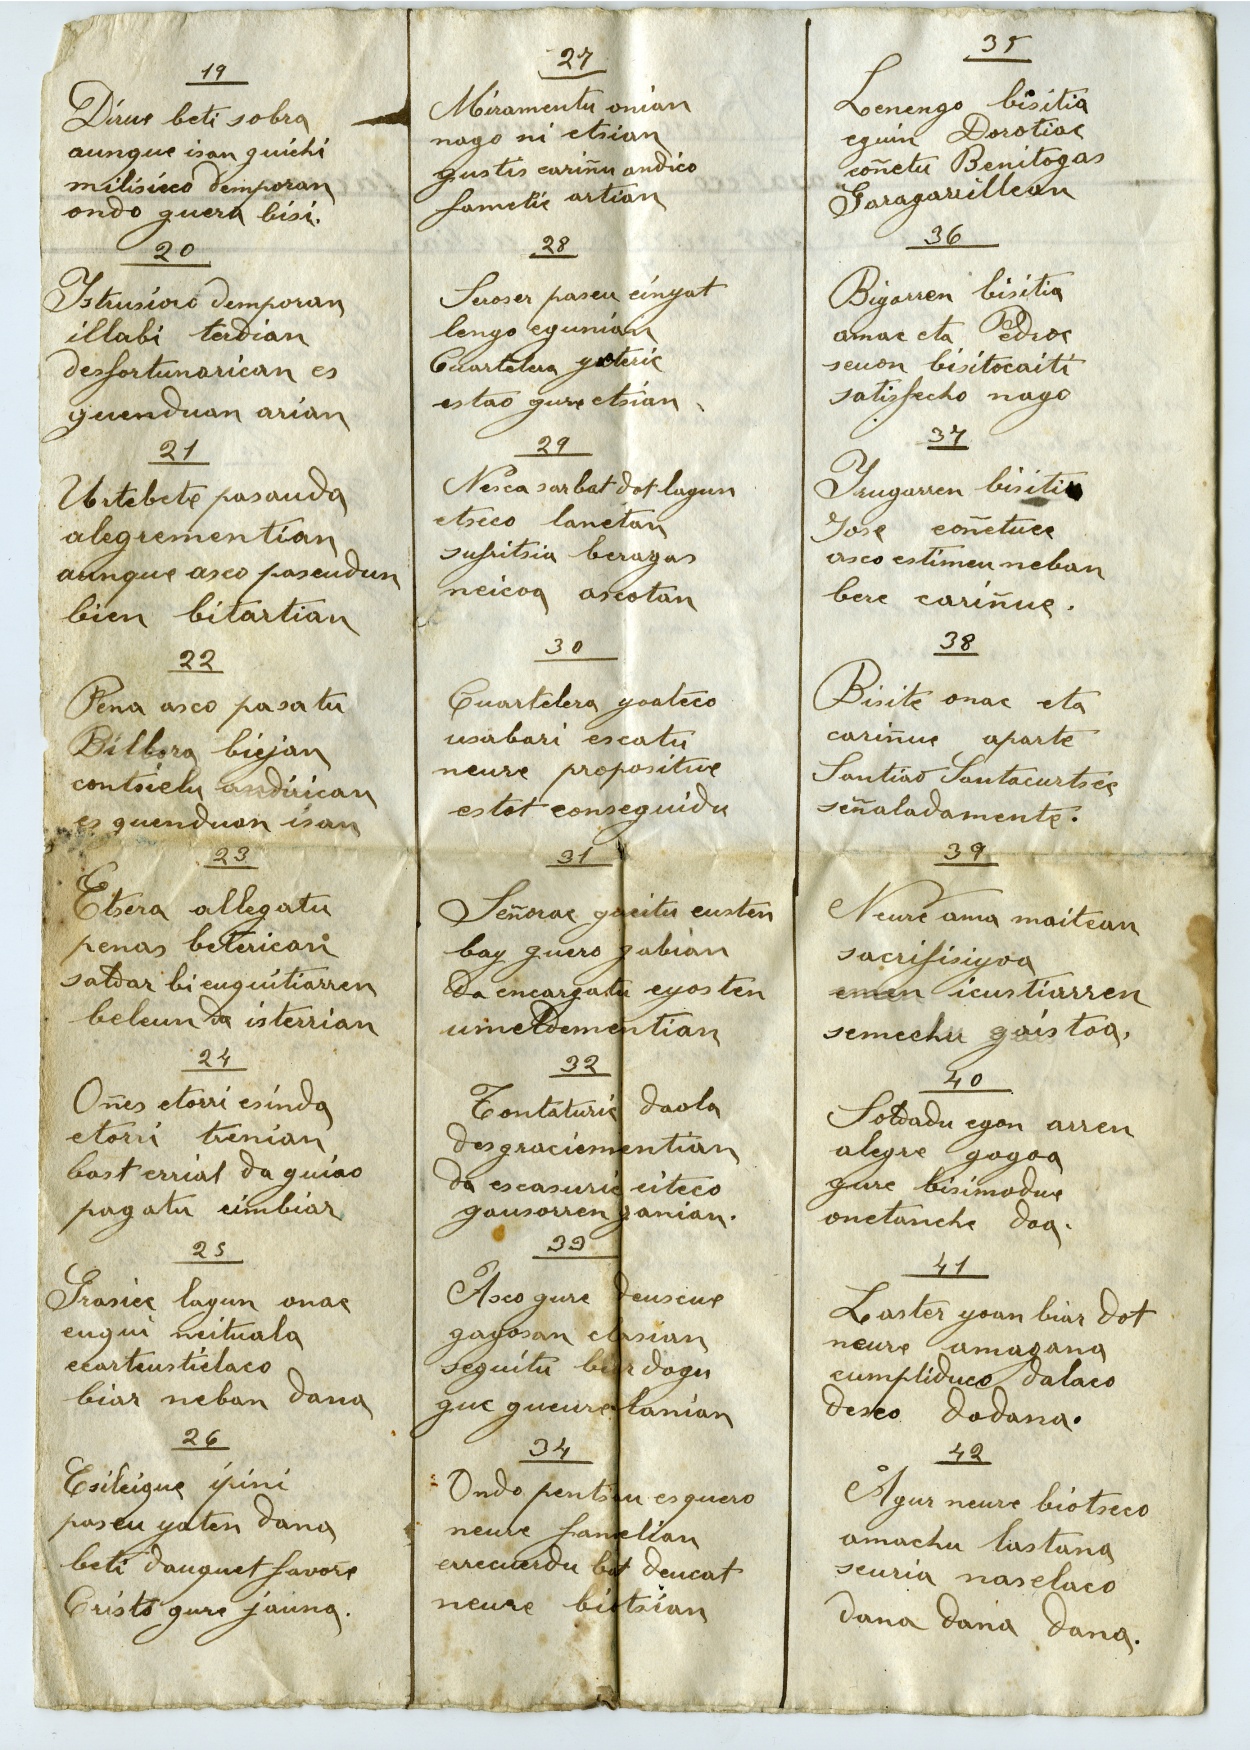 19
Dirue beti sobra
aunque isan guichi
milisieco demporan
ondo guera bisi.
20
Istrusioió demporan
illabi terdian
desfortunarican es
guenduan arian
21
Urtebete pasauda
alegrementian
aunque asco paseudun
bien bitartian
22
Pena asco pasatu
Bilbora biejan
contsielu andirican
es guenduan isan
23
Etsera allegatu
penas betericari
saldar bi euguitiarren
beleun da isterrian
24
Oñes etorri esinda
etorri trenian
bost errial da guiao
pagatu eimbiar
25
Grasiec lagun onac
eugui neituala
ecarteustielaco
biar neban dana
26
Esileigue ipini
paseu yaten dana
beti dauguet favore
Cristo gure jauna.
27
Miramentu onian
nago ni etsian
gustis cariñu andico
famelie artian
28
Seroser paseu einyat
lengo egunian
Cuartelera yoteric
estao gure etsian
29
Nesca sarbat dot lagun
etseco lanetan
sufritsia beragas
neicoa ascotan
30
Cuartelera yoateco
usabari escatu
neure propositue
estot conseguidu
31
Señorac yacitu eusten
bay guero gabian
da encargatu eyosten
umeldementian
32
Tontaturic daola
desgraciementian
da escasuric eiteco
gausorren ganian.
33
Asco gure deuscue
gagosan clasian
seguitu biar dogu
gue gueure lanian
34
Ondo pentsau esquero
neure famelian
errecuerdu bat deucat
neure biotsian
35
Lenengo bisitia
eguin Dorotiac
coñetu Benitogas
Garagarrillean
36
Bigarren bisitia
amac eta Pedroc
seuon bisitocaiti
satisfecho nago
37
Irugarren bisitia
Jose coñetuce
asco estimeu neban
bere cariñue.
38
Bisite onac eta
cariñue aparte
Santiao Santacurtsee
señaladamente.
39
Neure ama maitean
sacrifisiyoa
eman icustiarren
semechu gaistoa.
40
Soldadu egon arren
alegre gogoa
gure bisimodue
onetanche doa.
41
Laster yoan biar dot
neure amagana
cumpliduco dalaco
deseo dodana.
42
Agur neure biotseco
amachu lastana
seuria naselaco
dana dana dana.